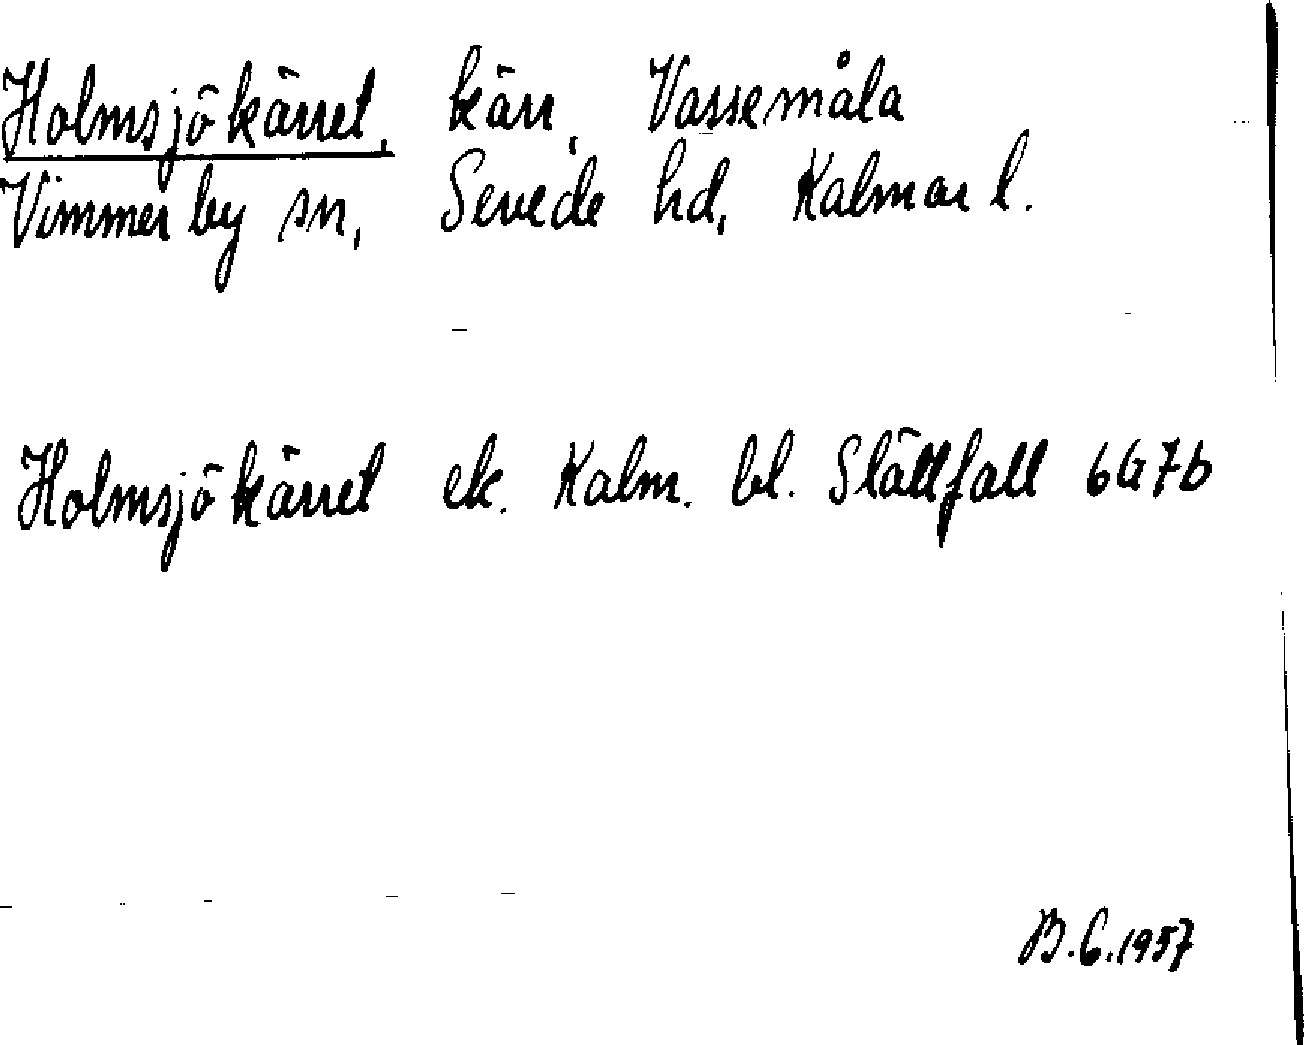 Holmsjökärret, kärr, Vassemåla
Vimmerby sn, Sevede hd, Kalmar l.
Holmsjökärret ek. Kalm. bl. Slättfall 6G7b
B.G.1957